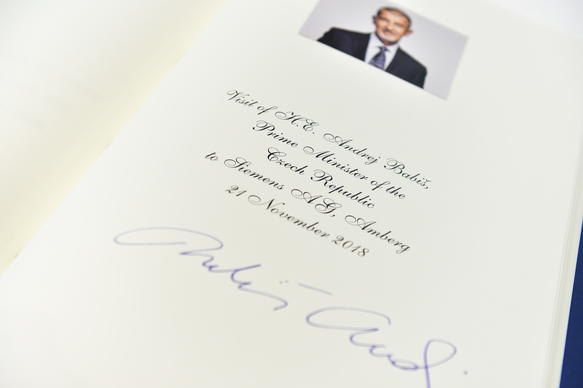 Visit of H.E. Andrej Babiš,
Prime Minister of the
Czech Republic
to Siemens AG, Amberg
21 November 2018